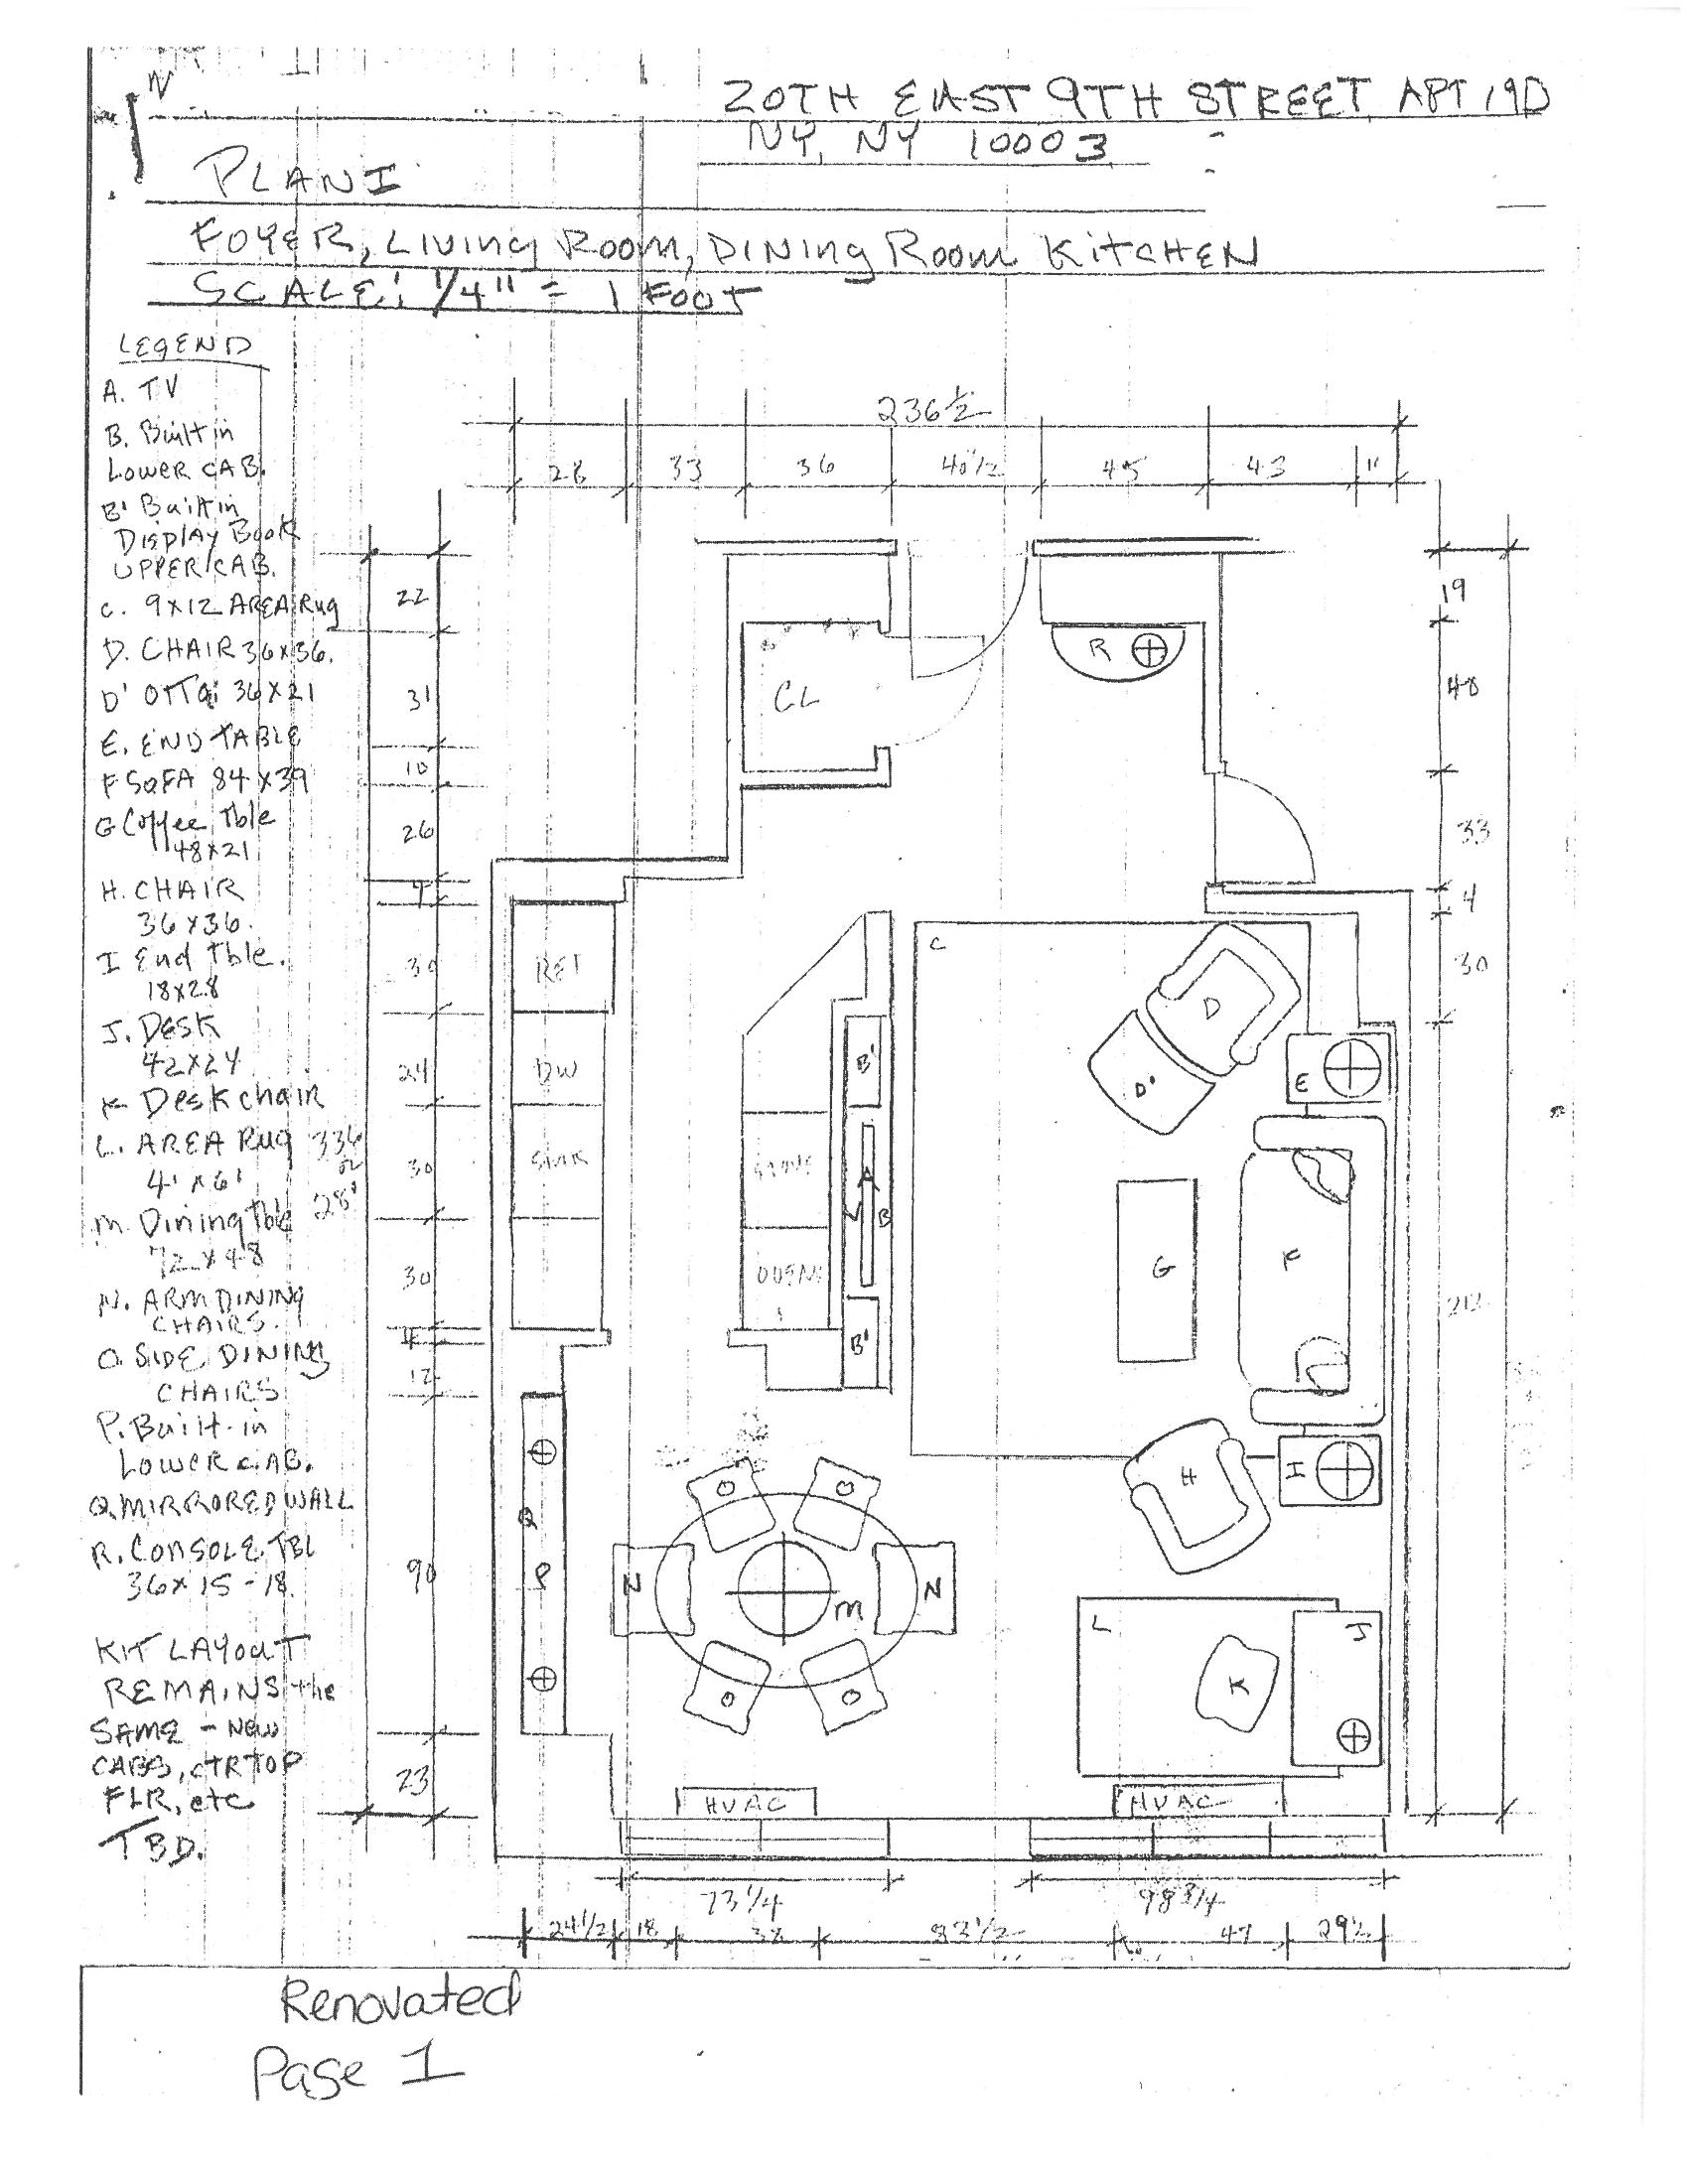 N
20TH EAST 9TH STREET, APT 19D
NY, NY 10003
PLAN I
FOYER, LIVING ROOM, DINING ROOM KITCHEN
SCALE: 1/4" = 1 FOOT
LEGEND
A. TV
B. Built in
LOWER CAB.
B' Built in
DISPLAY BOOK
UPPER CAB.
C. 9X12 AREA Rug
D. CHAIR 36X36.
D' OTTO: 36X21
E. END TABLE
F SOFA 84X39
G Coffee Tble
48X21
H. CHAIR
36X36.
I End Tble.
18X28
J. DESK
42X24
K Desk chair
L. AREA RUG 336
or
4' X 6' 28'
M. Dining Tble
72 X 48
N. ARM DINING
CHAIRS.
O. SIDE DINING
CHAIRS
P. Built-in
LOWER CAB.
Q. MIRRORED WALL
R. CONSOLE TBL
36X15-18.
KIT LAYOUT
REMAINS the
SAME - NEW
CABS, CTRTOP
FLR, etc
TBD.
236 1/2
28 33 36 40 1/2 45 43 11
22
31
10
26
7
30
24
30
30
4
12
90
23
19
48
33
4
30
212
CL
R
REF
DW
SINK
B'
A
B
B'
OVENS
C
D
D'
E
F
G
H
I
Q
P
N
M
N
O
O
O
O
L
K
J
HVAC
HVAC
73 1/4
98 3/4
24 1/2 18 38 83 1/2 47 29 1/2
Renovated
Page 1